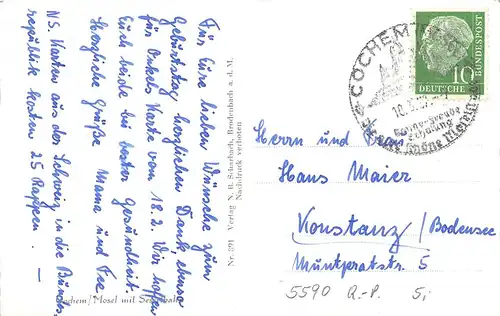 Für Eure lieben Wünsche zum
Geburtstag herzlichen Dank, ebenso
für Onkels Karte vom 18.2. Wir hoffen
Euch beide bei bester Gesundheit.
Herzliche Grüße Mama und
NS. Karten aus der Schweiz in die Bundes-
republik kosten 25 Rappen. —
Cochem/Mosel mit
Nr. 391 Verlag N. B. Scharbach, Brodenbach a. d. M.
Nachdruck verboten
COCHEM
10
DEUTSCHE
BUNDESPOST
Herrn und Frau
Hans Maier
Konstanz/Bodensee
Müntzeratstr. 5
5590 Q.-P. 5,-